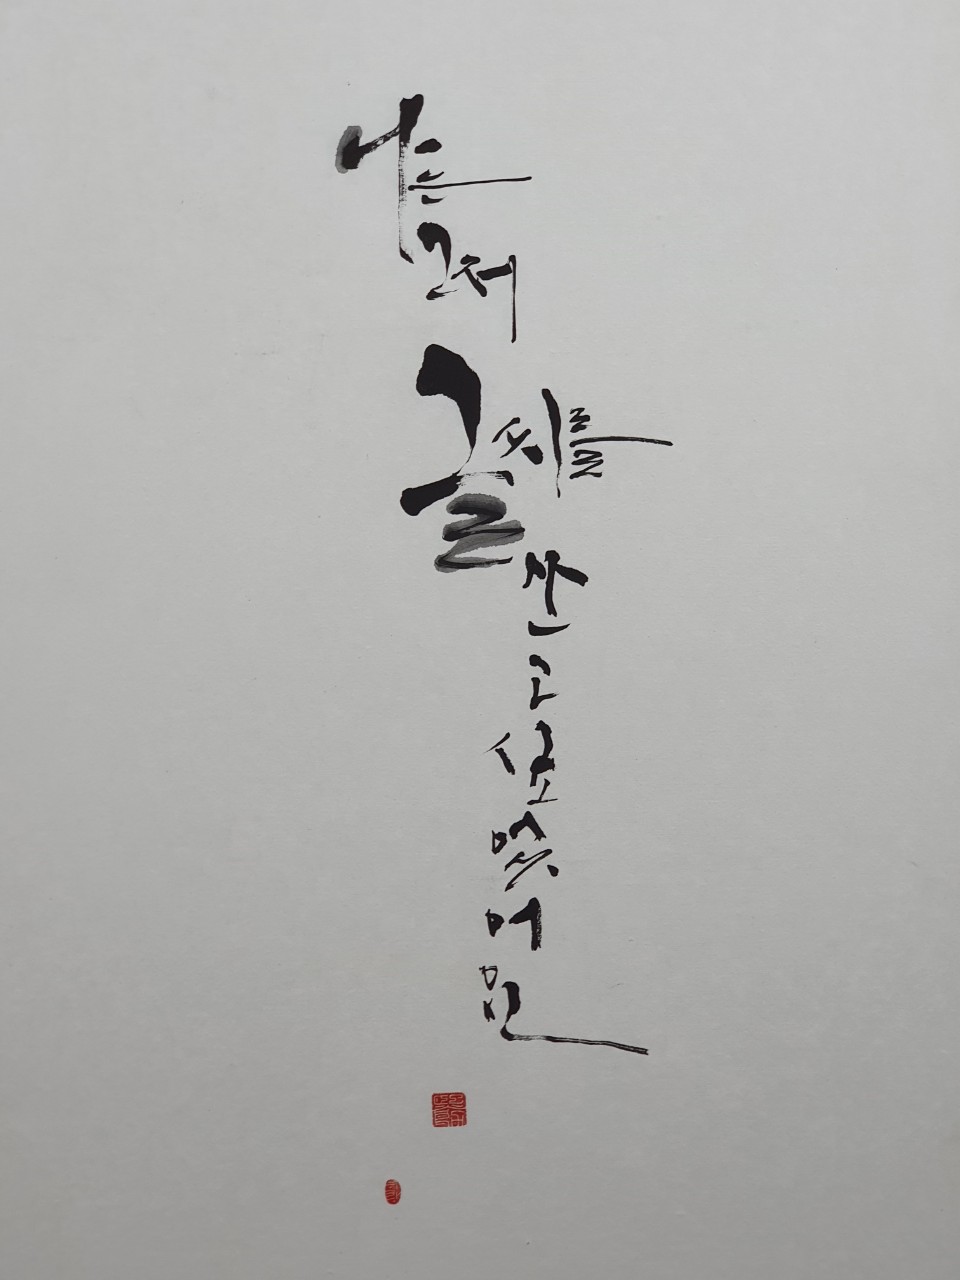 나는
그저
글씨를
쓰
고
싶
었
어
요